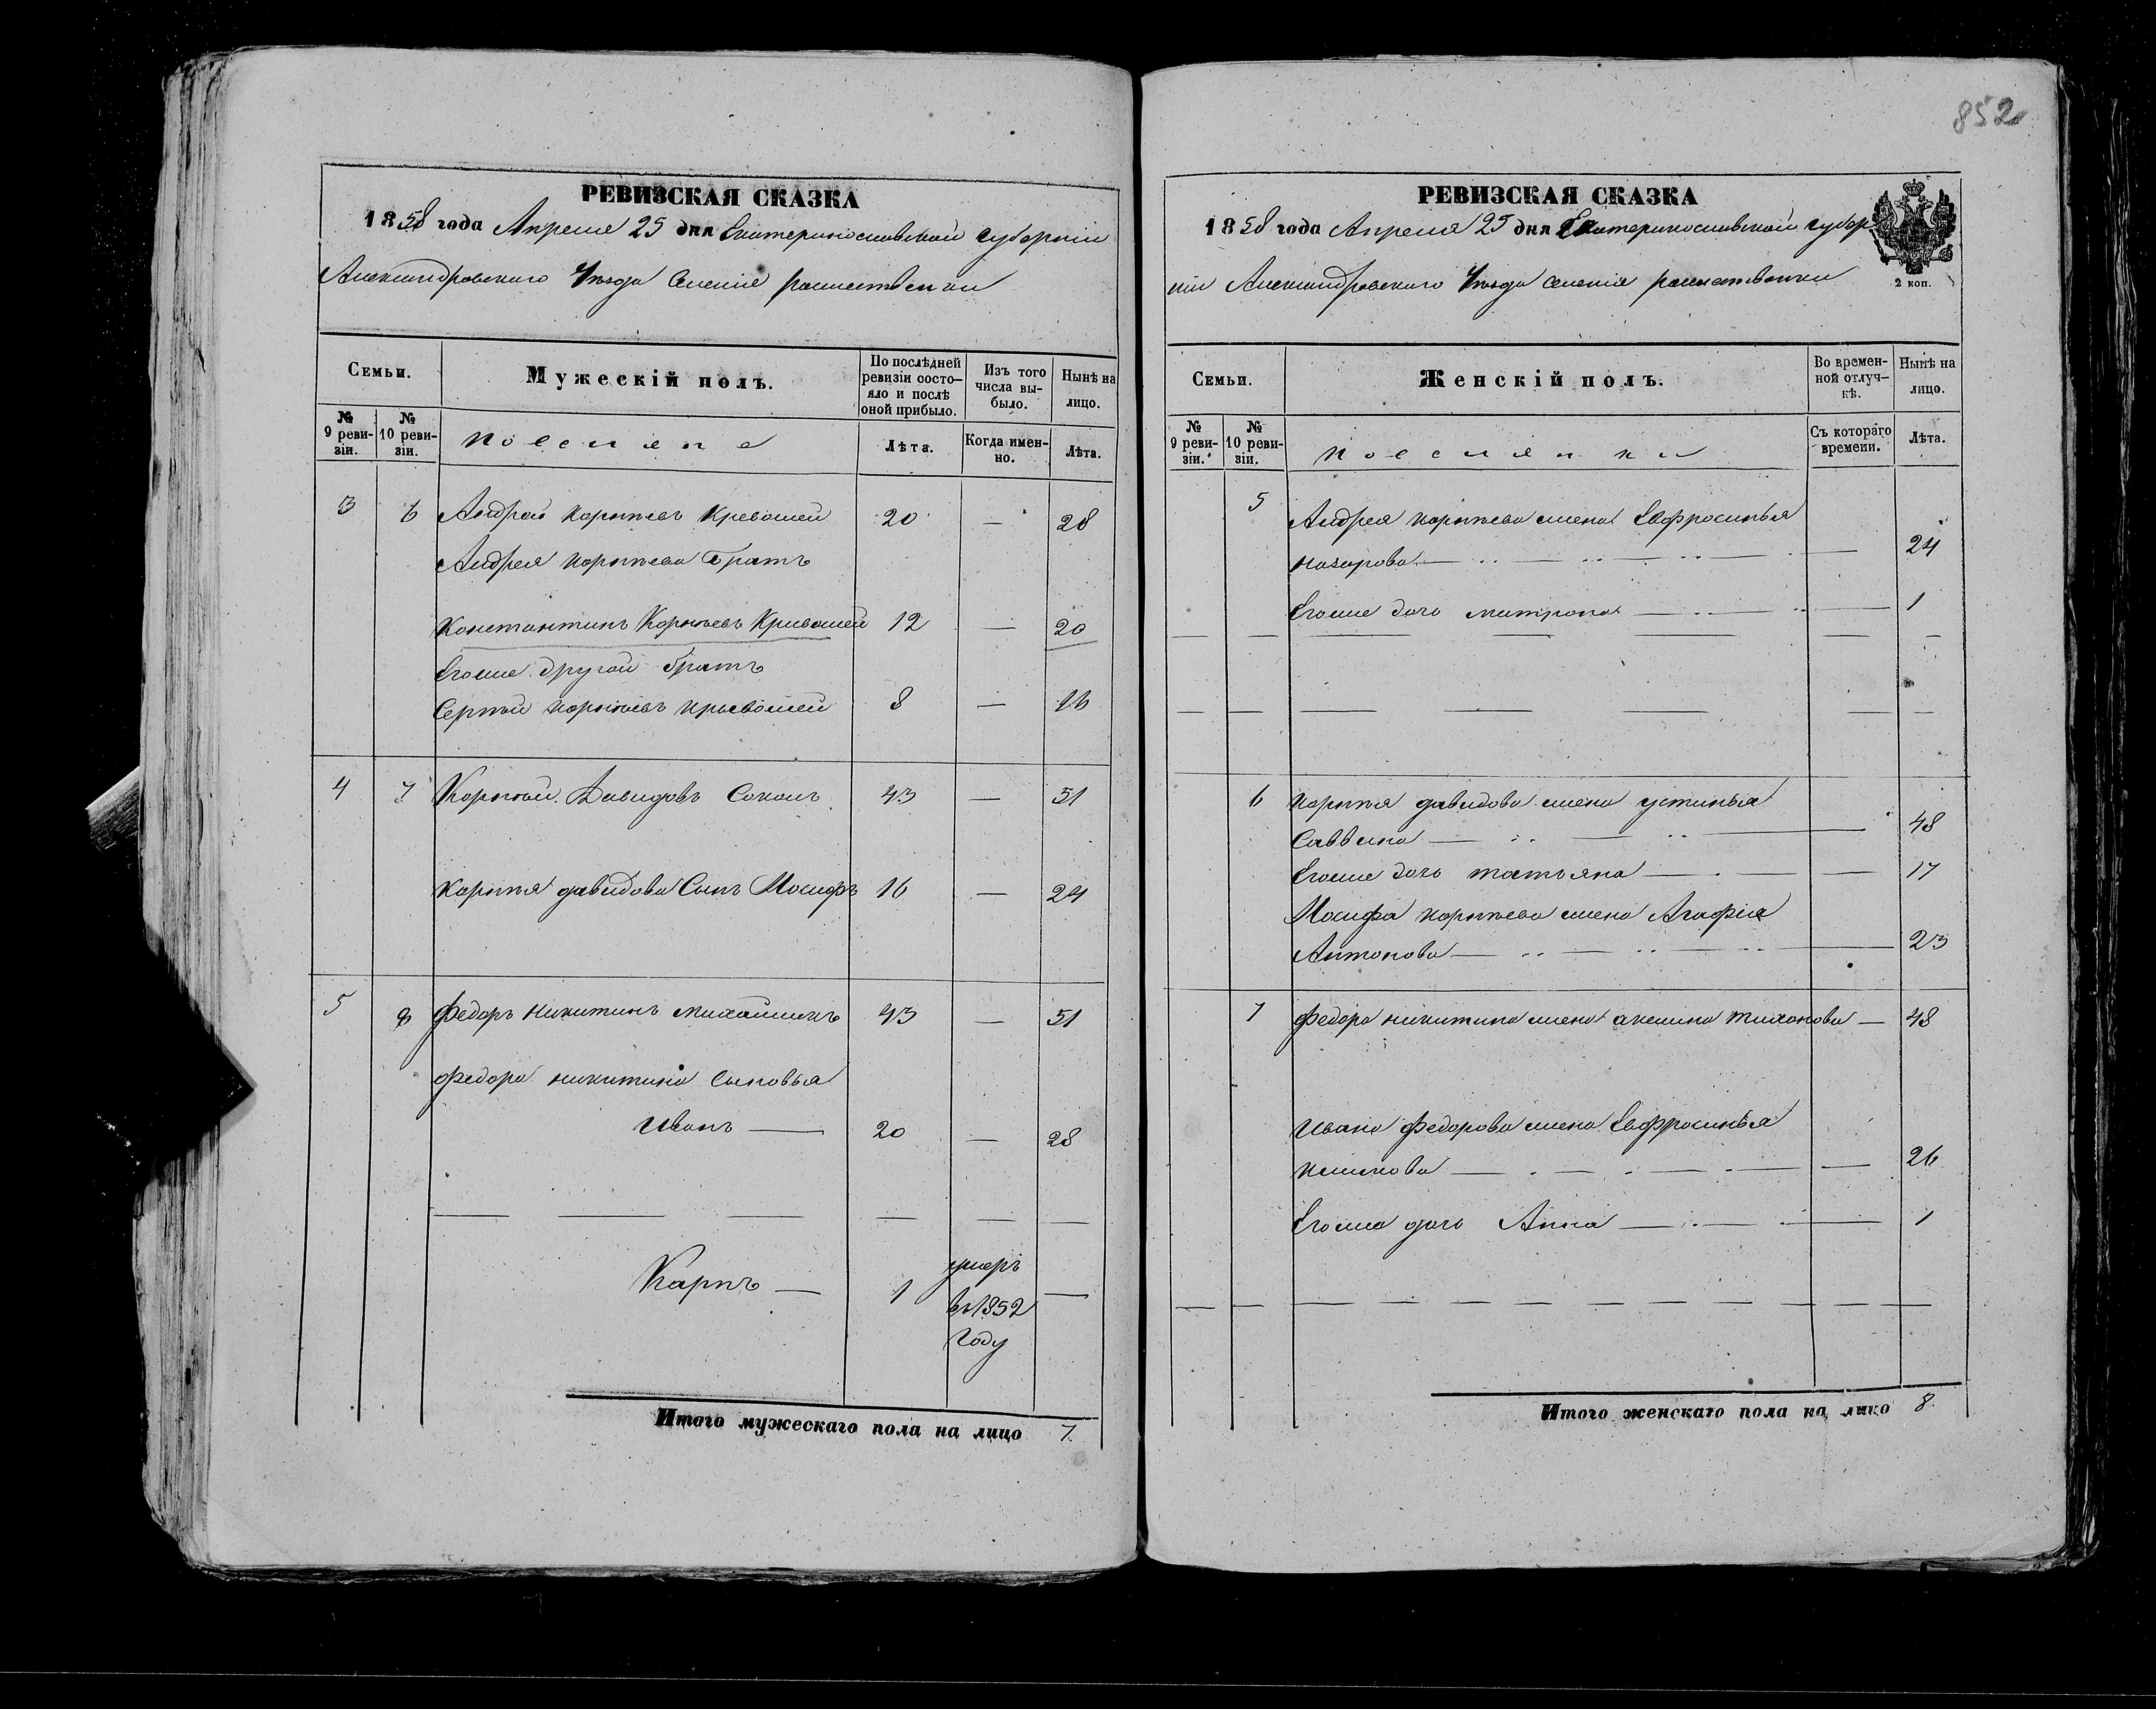 852
РЕВИЗСКАЯ СКАЗКА
1858 года Апреля 25 дня Екатеринославской Губерніи
Александровского Уезда Селенія
Семьи.
Мужескій полъ.
По послѣдней ревизіи состо-
яло и послѣ
оной прибыло.
Изъ того
числа вы-
было.
Нынѣ на
лицо.
№
9 реви-
зіи.
№
10 реви-
зіи.
Поселяне
Лѣта.
Когда имен-
но.
Лѣта.
3 6 Андрей Корнѣевъ Кревошей 20 — 28
Андрея Корнѣева братъ
Константинъ Корнѣевъ Кривошей 12 — 20
Егоже другой братъ
Сергѣй Корнѣевъ Кревошей 8 — 16
4 7 Корнѣй Давидовъ Соколъ 43 — 51
Корнѣя давидова Сынъ Иосифъ 16 — 24
5 8 Федоръ Никитинъ Михайликъ 43 — 51
Федора Никитина Сыновья
Иванъ — 20 — 28
Карпъ — 1 умеръ
въ 1852
году —
Итого мужескаго пола на лицо 7.
РЕВИЗСКАЯ СКАЗКА
1858 года Апреля 25 дня Екатеринославской Губер
ніи Александровского Уезда Селенія
2 коп.
Семьи.
Женскій полъ.
Во времен-
ной отлуч-
кѣ.
Нынѣ на
лицо.
№
9 реви-
зіи.
№
10 реви-
зіи.
Поселянки
Съ котораго
времени.
Лѣта.
5 Андрея Корнѣева жена Евфросинья
Назарова — — 24
Егоже дочь Матрона — — 1
6 Корнѣя давидова жена устинья
Саввина — 48
Егоже дочь татьяна — — 17
Иосифа Корнѣева жена Агафія
Антонова — 23
7 Федора никитина жена акелина тихонова — 48
Ивана Федорова жена Евфросинья
— — 26
Егоже дочь Анна — — 1
Итого женскаго пола на лицо 8.